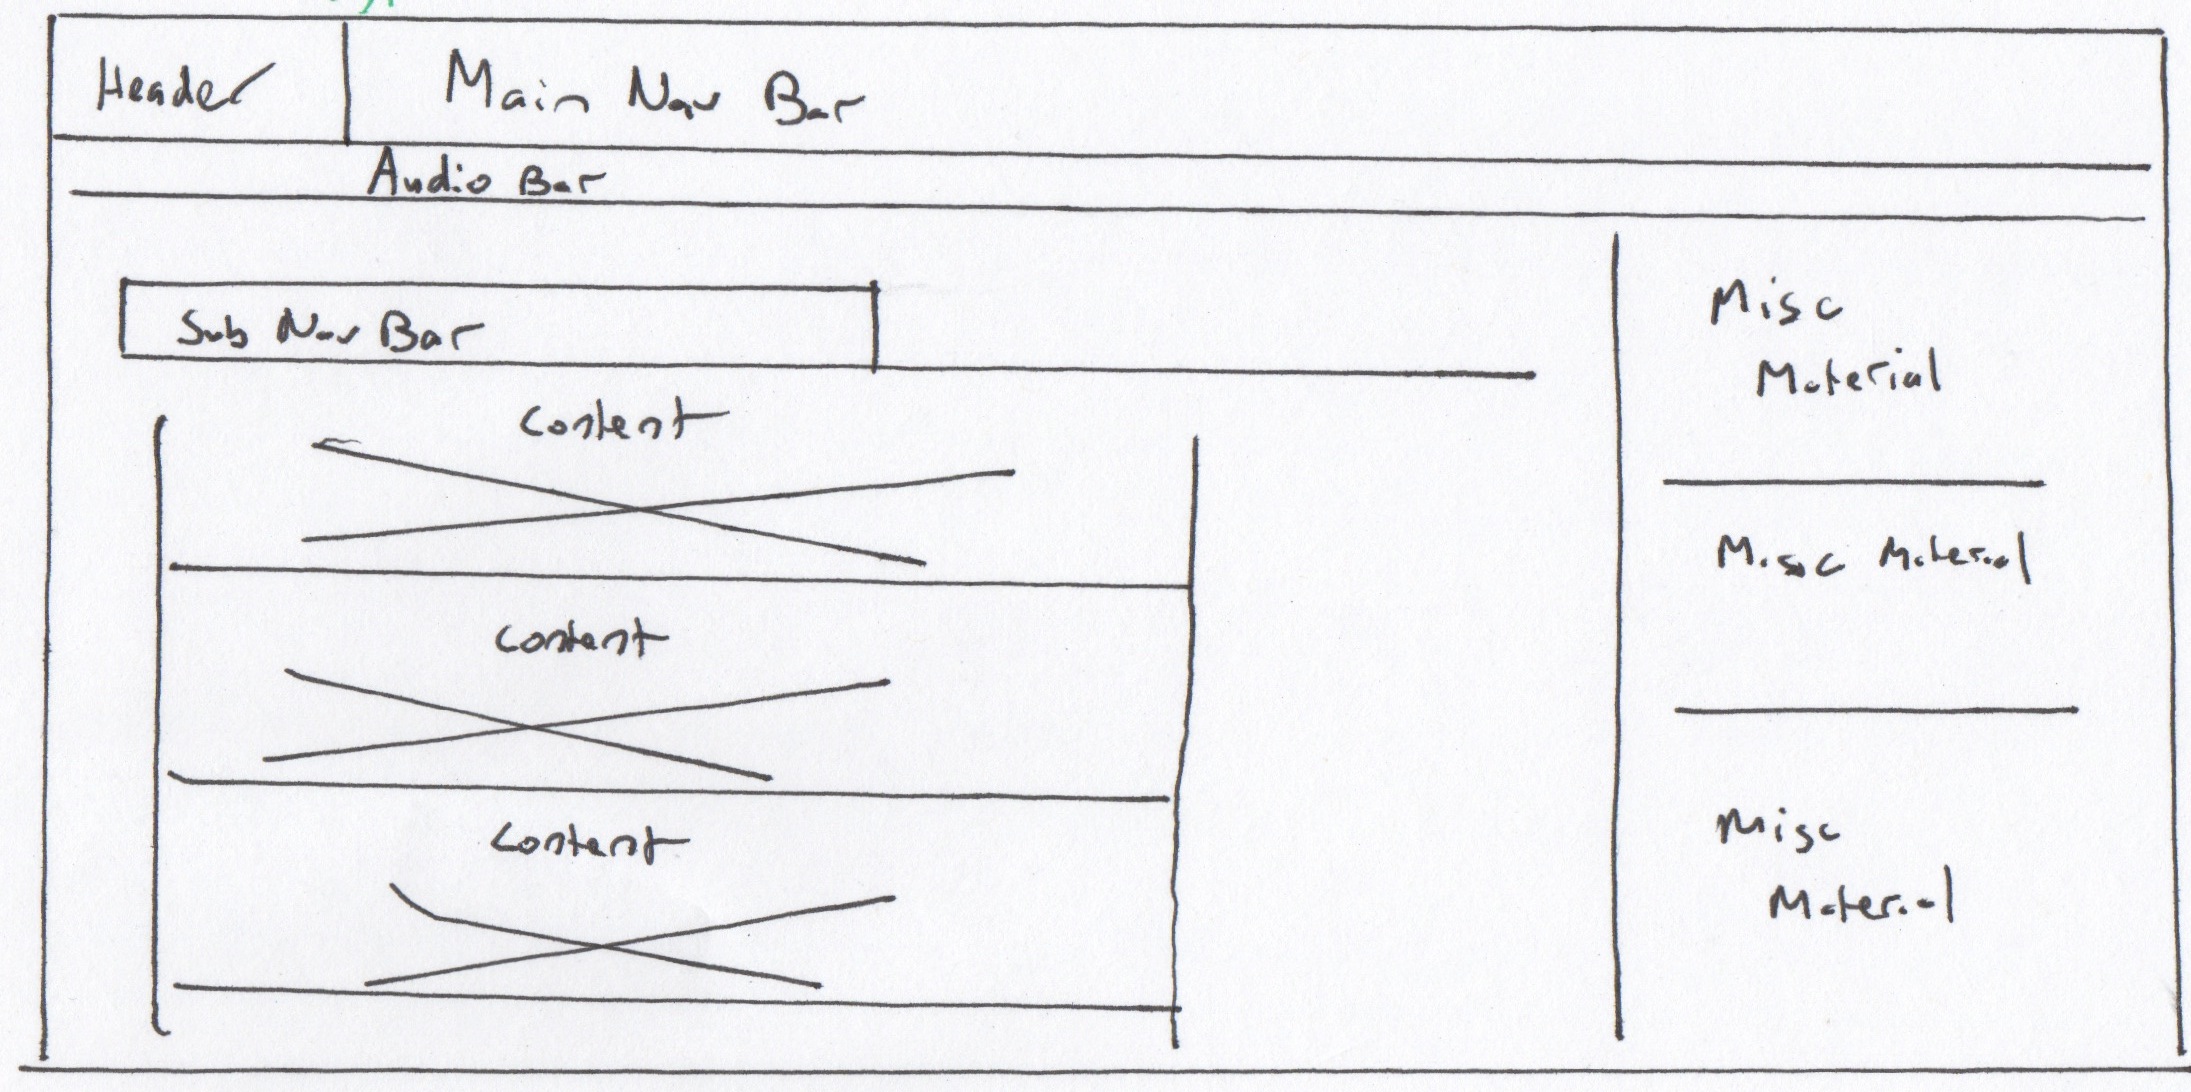 Header
Main Nav Bar
Audio Bar
Sub Nav Bar
Content
Content
Content
Misc
Material
Misc Material
Misc
Material